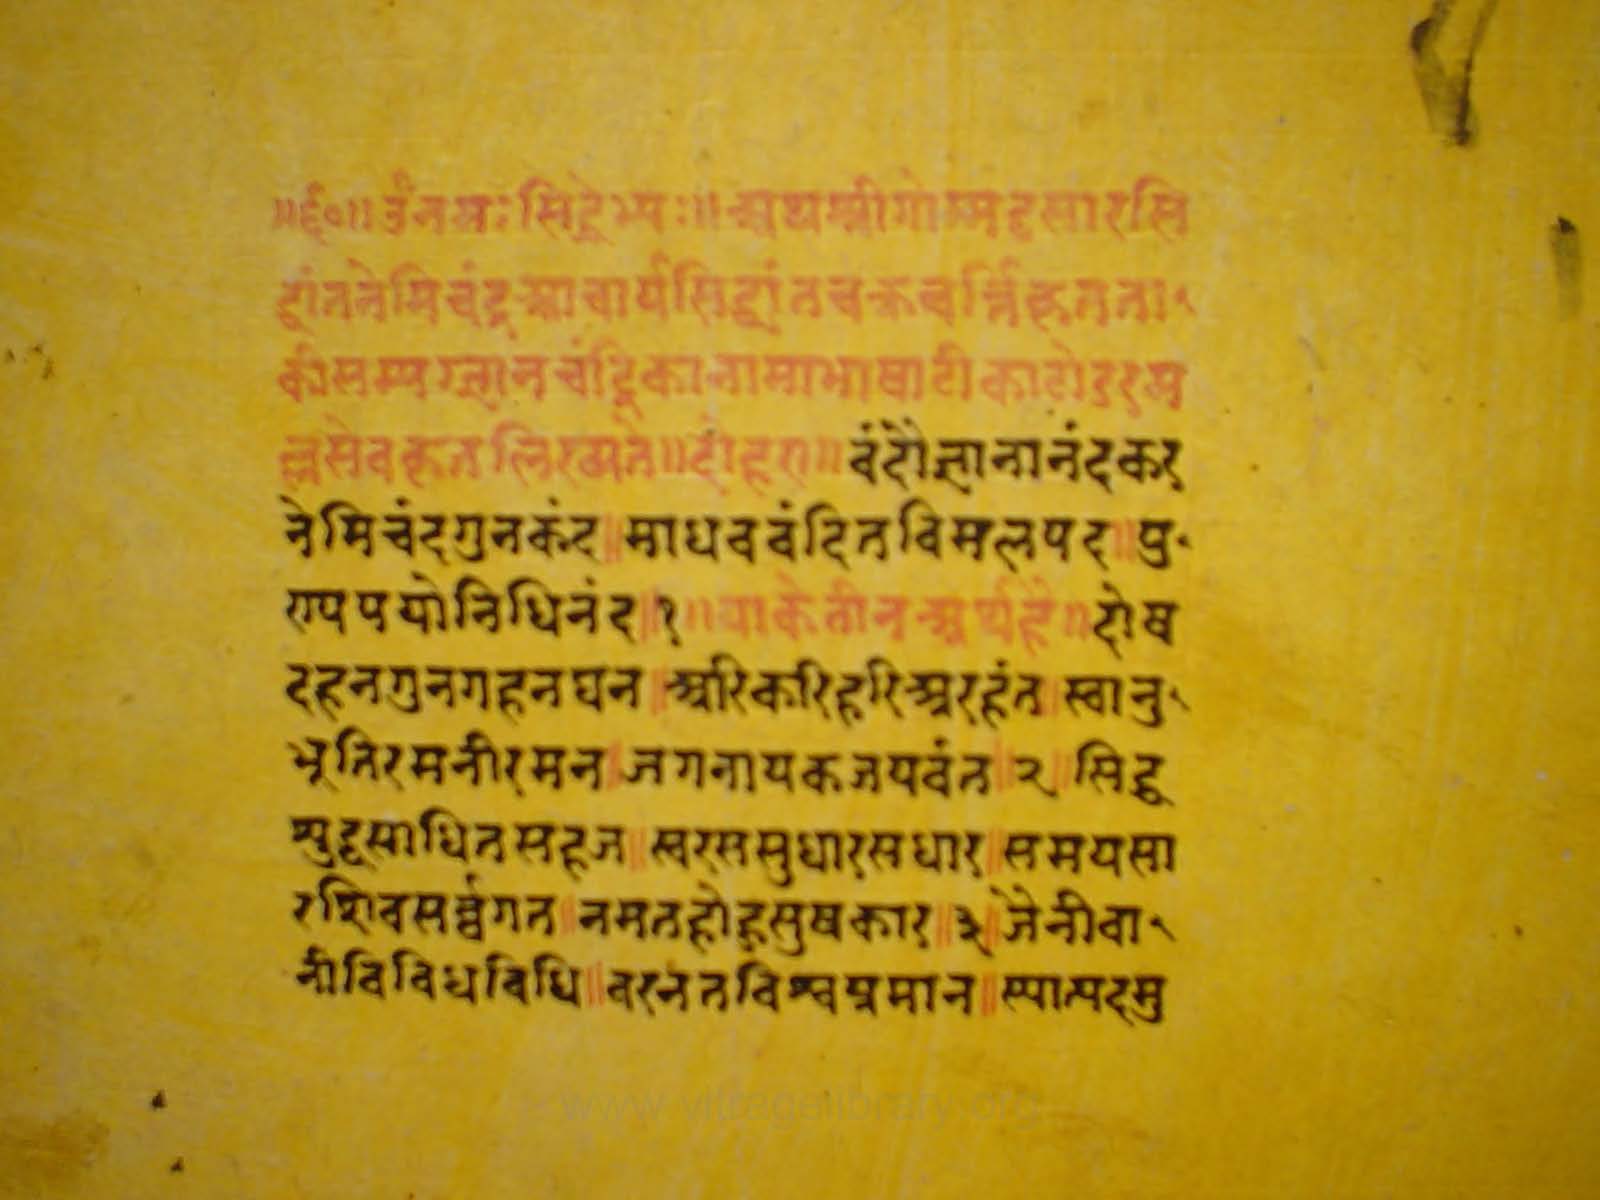 ॥६०॥ उँनमः सिद्धेभ्यः॥ अथश्रीगोम्मट्टसारसि
द्धांतनेमिचंद्रआचार्यसिद्धांतचक्रवर्त्तिकृतता
कीसम्यग्ज्ञानचंद्रिकानामाभाषाटीकाटोडरम
ल्लसेवकृतलिख्यते॥दोहरा॥ वंदौंज्ञानानंदकर
नेमिचंदगुनकंद॥माधववंदितविमलपद॥पु
ण्यपयोनिधिनंद॥१॥याकेतीनअर्थहै॥दोष
दहनगुनगहनघन॥अरिकरिहरिअरहंत॥स्वानु
भूतिरमनीरमन॥जगनायकजयवंत॥२॥सिद्ध
सुद्धसाधितसहज॥स्वरससुधारसधार॥समयसा
रशिवसर्व्वगत॥नमतहोहुसुषकार॥३॥जैनीवा
नीविविधविधि॥वरनतविश्वप्रमान॥स्यात्पदमु
www.vitragelibrary.org